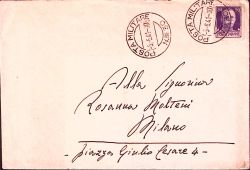 POSTA MILITARE
POSTA MILITARE
Alla Signorina
Rosanna Molteni
Milano
- piazza Giulio Cesare 4 -